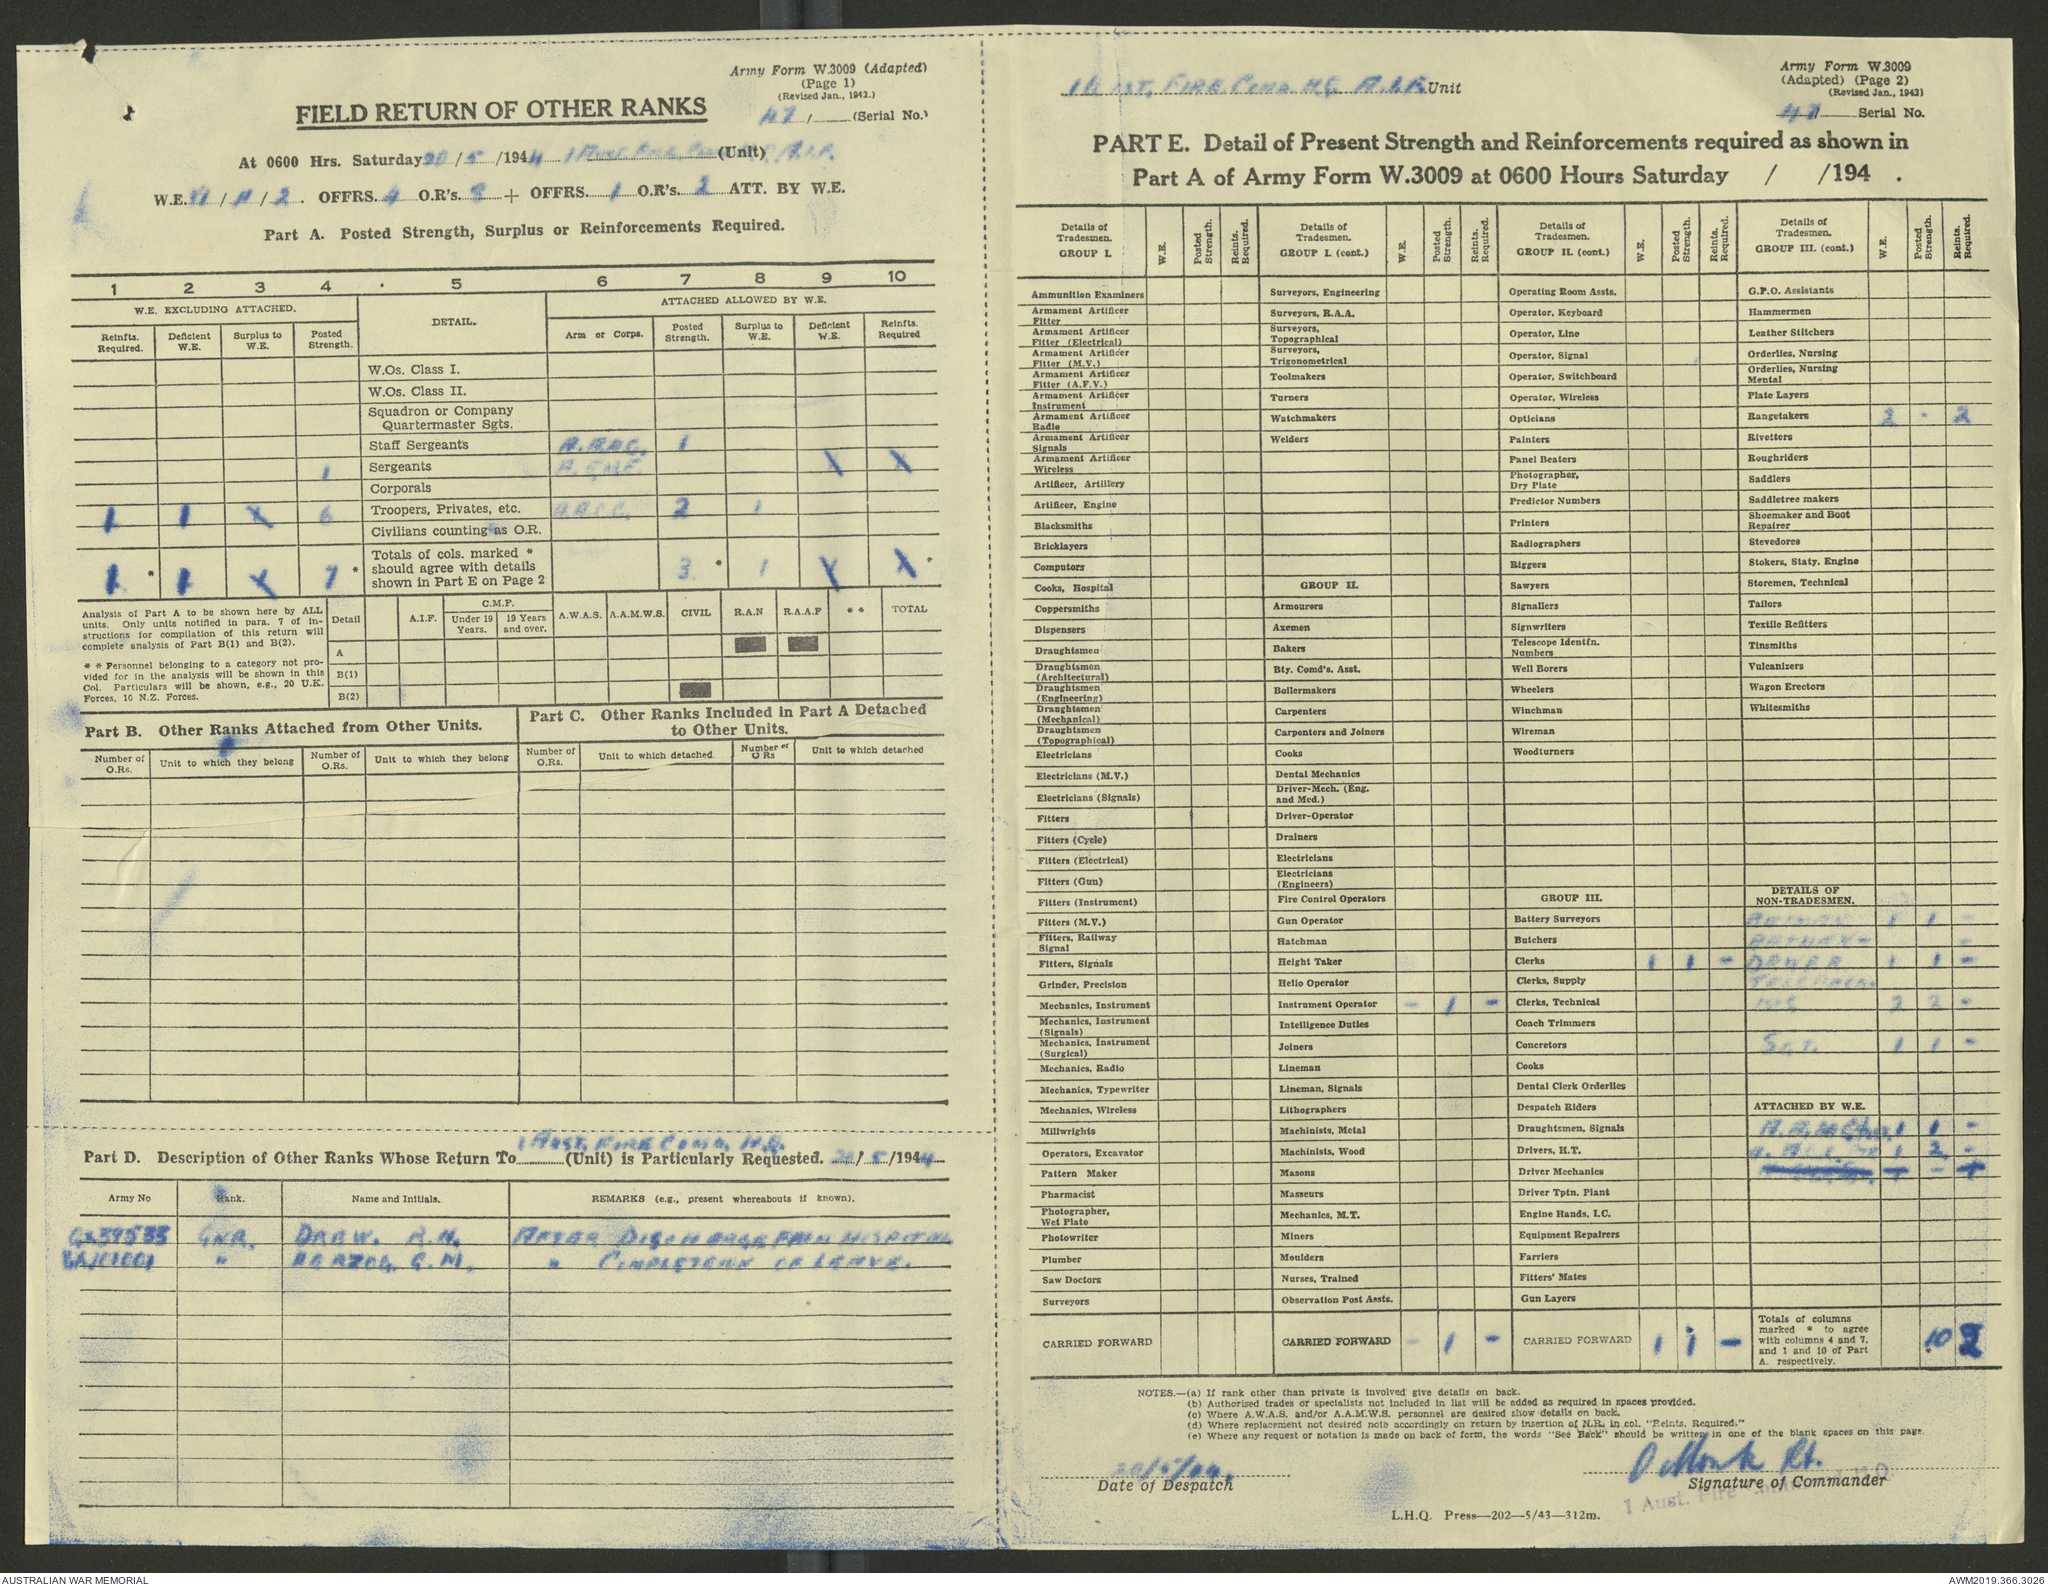 Army Form W.3009 (Adapted)
(Page 1)
(Revised Jan., 1943.)
FIELD RETURN OF OTHER RANKS
47 / (Serial No.)
At 0600 Hrs. Saturday 20 / 5 / 1944 1 Aust. Fire Comd (Unit) A.I.F.
W.E. / II / 2. OFFRS. 4 O.R's. 8 + OFFRS. 1 O.R's. 2 ATT. BY W.E.
Part A. Posted Strength, Surplus or Reinforcements Required.
1 2 3 4 5 6 7 8 9 10
W.E. EXCLUDING ATTACHED. DETAIL. ATTACHED ALLOWED BY W.E.
Reinfts. Required. Deficient W.E. Surplus to W.E. Posted Strength. Arm or Corps. Posted Strength. Surplus to W.E. Deficient W.E. Reinfts. Required
W.Os. Class I.
W.Os. Class II.
Squadron or Company
Quartermaster Sgts.
Staff Sergeants 1
1 Sergeants X X
Corporals
1 1 X 6 Troopers, Privates, etc. A.A.C.C. 2 1
Civilians counting as O.R.
Totals of cols. marked *
should agree with details
shown in Part E on Page 2
1 * 1 X 7 * 3 * 1 X X *
Analysis of Part A to be shown here by ALL
units. Only units notified in para. 7 of in-
structions for compilation of this return will
complete analysis of Part B(1) and B(2).
* * Personnel belonging to a category not pro-
vided for in the analysis will be shown in this
Col. Particulars will be shown, e.g., 20 U.K.
Forces, 10 N.Z. Forces.
Detail A.I.F. C.M.F. Under 19 Years. 19 Years and over. A.W.A.S. A.A.M.W.S. CIVIL R.A.N R.A.A.F * * TOTAL
A
B(1)
B(2)
Part B. Other Ranks Attached from Other Units.
Number of O.Rs. Unit to which they belong Number of O.Rs. Unit to which they belong
Part C. Other Ranks Included in Part A Detached
to Other Units.
Number of O.Rs. Unit to which detached Number of O Rs Unit to which detached
1 Aust. Fire Comd. H.Q.
Part D. Description of Other Ranks Whose Return To (Unit) is Particularly Requested. 20 / 5 /1944
Army No Rank. Name and Initials. REMARKS (e.g., present whereabouts if known).
GNR. DRAW. A.H. AFTER DISCHARGE FROM HOSPITAL
" HERZOG. G.M. " COMPLETION OF LEAVE.
1 AUST. FIRE COMD HQ A.I.F. Unit
Army Form W.3009
(Adapted) (Page 2)
(Revised Jan., 1943)
47 Serial No.
PART E. Detail of Present Strength and Reinforcements required as shown in
Part A of Army Form W.3009 at 0600 Hours Saturday / /194 .
Details of Tradesmen. GROUP I. W.E. Posted Strength. Reints. Required.
Details of Tradesmen. GROUP I. (cont.) W.E. Posted Strength. Reints. Required.
Details of Tradesmen. GROUP II. (cont.) W.E. Posted Strength. Reints. Required.
Details of Tradesmen. GROUP III. (cont.) W.E. Posted Strength. Reints. Required.
Ammunition Examiners
Armament Artificer Fitter
Armament Artificer Fitter (Electrical)
Armament Artificer Fitter (M.V.)
Armament Artificer Fitter (A.F.V.)
Armament Artificer Instrument
Armament Artificer Radio
Armament Artificer Signals
Armament Artificer Wireless
Artificer, Artillery
Artificer, Engine
Blacksmiths
Bricklayers
Computors
Cooks, Hospital
Coppersmiths
Dispensers
Draughtsmen
Draughtsmen (Architectural)
Draughtsmen (Engineering)
Draughtsmen (Mechanical)
Draughtsmen (Topographical)
Electricians
Electricians (M.V.)
Electricians (Signals)
Fitters
Fitters (Cycle)
Fitters (Electrical)
Fitters (Gun)
Fitters (Instrument)
Fitters (M.V.)
Fitters, Railway Signal
Fitters, Signals
Grinder, Precision
Mechanics, Instrument
Mechanics, Instrument (Signals)
Mechanics, Instrument (Surgical)
Mechanics, Radio
Mechanics, Typewriter
Mechanics, Wireless
Millwrights
Operators, Excavator
Pattern Maker
Pharmacist
Photographer, Wet Plate
Photowriter
Plumber
Saw Doctors
Surveyors
CARRIED FORWARD
Surveyors, Engineering
Surveyors, R.A.A.
Surveyors, Topographical
Surveyors, Trigonometrical
Toolmakers
Turners
Watchmakers
Welders
GROUP II.
Armourers
Axemen
Bakers
Bty. Comd's. Asst.
Boilermakers
Carpenters
Carpenters and Joiners
Cooks
Dental Mechanics
Driver-Mech. (Eng. and Med.)
Driver-Operator
Drainers
Electricians
Electricians (Engineers)
Fire Control Operators
Gun Operator
Hatchman
Height Taker
Helio Operator
Instrument Operator - 1 -
Intelligence Duties
Joiners
Lineman
Lineman, Signals
Lithographers
Machinists, Metal
Machinists, Wood
Masons
Masseurs
Mechanics, M.T.
Miners
Moulders
Nurses, Trained
Observation Post Assts.
CARRIED FORWARD - 1 -
Operating Room Assts.
Operator, Keyboard
Operator, Line
Operator, Signal
Operator, Switchboard
Operator, Wireless
Opticians
Painters
Panel Beaters
Photographer, Dry Plate
Predictor Numbers
Printers
Radiographers
Riggers
Sawyers
Signallers
Signwriters
Telescope Identfn. Numbers
Well Borers
Wheelers
Winchman
Wireman
Woodturners
GROUP III.
Battery Surveyors
Butchers
Clerks 1 1 -
Clerks, Supply
Clerks, Technical
Coach Trimmers
Concretors
Cooks
Dental Clerk Orderlies
Despatch Riders
Draughtsmen, Signals
Drivers, H.T.
Driver Mechanics
Driver Tptn. Plant
Engine Hands, I.C.
Equipment Repairers
Farriers
Fitters' Mates
Gun Layers
CARRIED FORWARD 1 1 -
G.P.O. Assistants
Hammermen
Leather Stitchers
Orderlies, Nursing
Orderlies, Nursing Mental
Plate Layers
Rangetakers 2 - 2
Rivetters
Roughriders
Saddlers
Saddletree makers
Shoemaker and Boot Repairer
Stevedores
Stokers, Staty. Engine
Storemen, Technical
Tailors
Textile Refitters
Tinsmiths
Vulcanizers
Wagon Erectors
Whitesmiths
DETAILS OF NON-TRADESMEN.
BATMAN 1 1 -
BATMAN - -
DRIVER 1 1 -
2 2 -
SGT. 1 1 -
ATTACHED BY W.E.
1 1 -
1 2 -
Totals of columns marked * to agree with columns 4 and 7, and 1 and 10 of Part A. respectively. 10 2
NOTES.—(a) If rank other than private is involved give details on back.
(b) Authorised trades or specialists not included in list will be added as required in spaces provided.
(c) Where A.W.A.S. and/or A.A.M.W.S. personnel are desired show details on back.
(d) Where replacement not desired note accordingly on return by insertion of N.R. in col. "Reints. Required."
(e) Where any request or notation is made on back of form, the words "See Back" should be written in one of the blank spaces on this page.
20/5/44.
Date of Despatch
Signature of Commander
1 Aust. Fire
L.H.Q. Press—202—5/43—312m.
AUSTRALIAN WAR MEMORIAL
AWM2019.366.3026